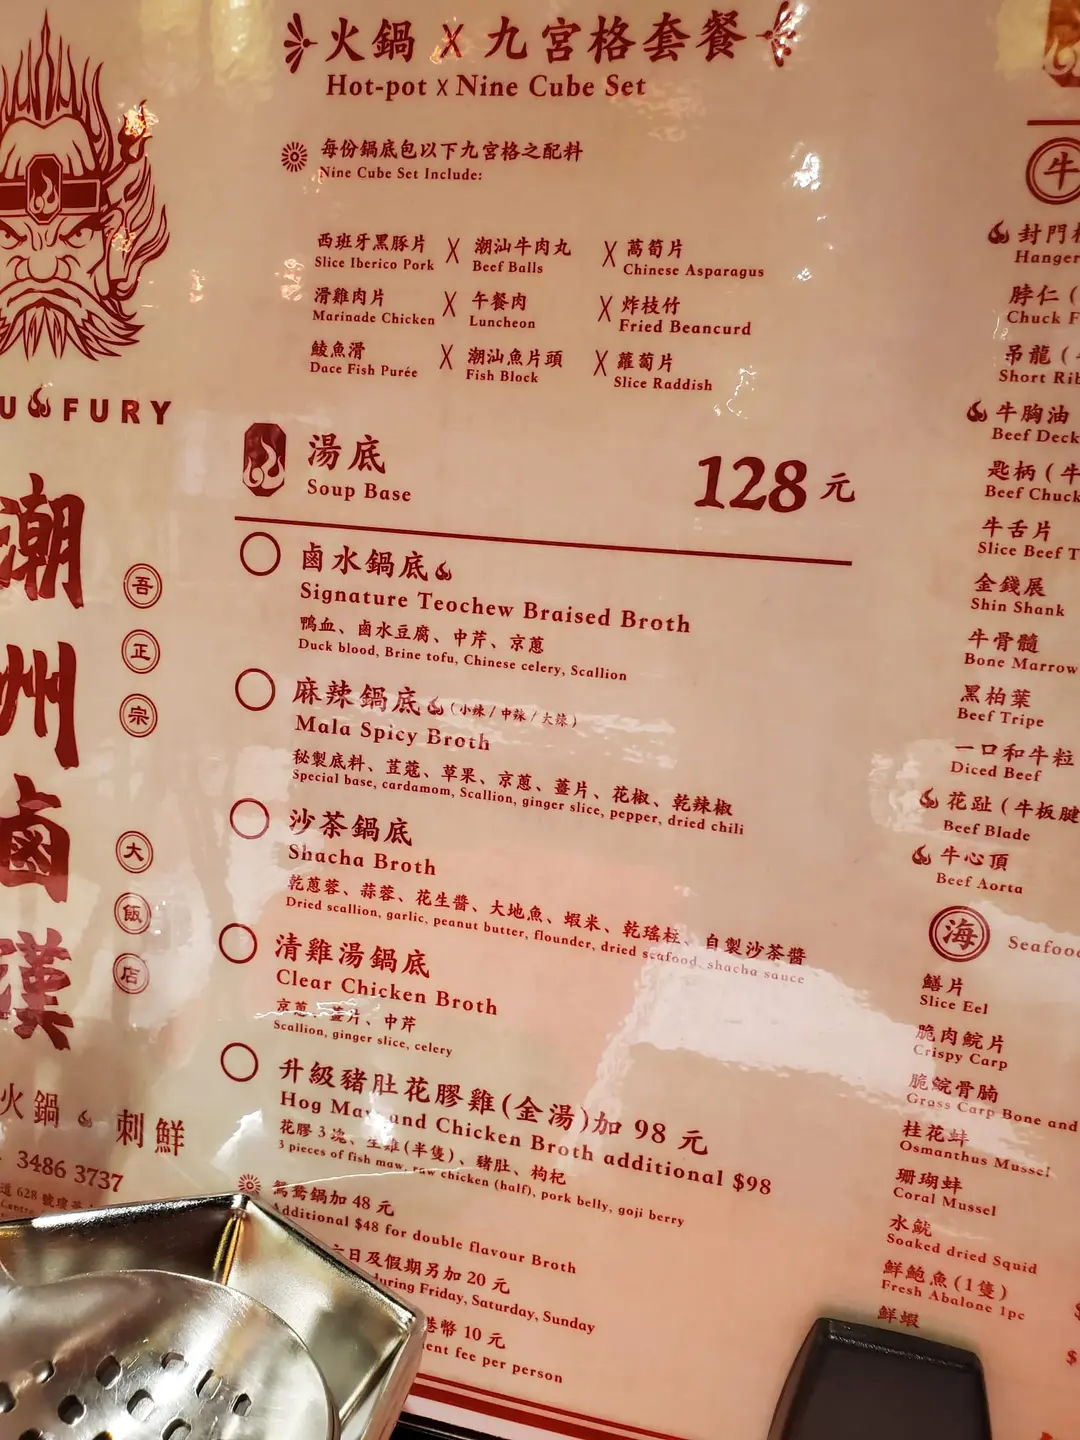 火鍋 X 九宮格套餐
Hot-pot x Nine Cube Set
每份鍋底包以下九宮格之配料
Nine Cube Set Include:
西班牙黑豚片 X 潮汕牛肉丸 X 萵筍片
Slice Iberico Pork Beef Balls Chinese Asparagus
滑雞肉片 X 午餐肉 X 炸枝竹
Marinade Chicken Luncheon Fried Beancurd
鯪魚滑 X 潮汕魚片頭 X 蘿蔔片
Dace Fish Purée Fish Block Slice Raddish
湯底
Soup Base
128 元
鹵水鍋底
Signature Teochew Braised Broth
鴨血、鹵水豆腐、中芹、京蔥
Duck blood, Brine tofu, Chinese celery, Scallion
麻辣鍋底 (小辣/中辣/大辣)
Mala Spicy Broth
秘製底料、荳蔻、草果、京蔥、薑片、花椒、乾辣椒
Special base, cardamom, Scallion, ginger slice, pepper, dried chili
沙茶鍋底
Shacha Broth
乾蔥蓉、蒜蓉、花生醬、大地魚、蝦米、乾瑤柱、自製沙茶醬
Dried scallion, garlic, peanut butter, flounder, dried seafood, shacha sauce
清雞湯鍋底
Clear Chicken Broth
京蔥、薑片、中芹
Scallion, ginger slice, celery
升級豬肚花膠雞(金湯)加 98 元
Hog Maw and Chicken Broth additional $98
花膠 3 塊、生雞(半隻)、豬肚、枸杞
3 pieces of fish maw, raw chicken (half), pork belly, goji berry
鴛鴦鍋加 48 元
Additional $48 for double flavour Broth
六日及假期另加 20 元
during Friday, Saturday, Sunday
港幣 10 元
fee per person
U FURY
潮州鹵漢
吾正宗
大飯店
火鍋 刺鮮
3486 3737
道 628 號瓊
Centre
牛
封門
Hanger
脖仁 (
Chuck F
吊龍 (
Short Rib
牛胸油
Beef Deck
匙柄 (牛
Beef Chuck
牛舌片
Slice Beef T
金錢展
Shin Shank
牛骨髓
Bone Marrow
黑柏葉
Beef Tripe
一口和牛粒
Diced Beef
花趾 (牛板腱
Beef Blade
牛心頂
Beef Aorta
海 Seafood
鱔片
Slice Eel
脆肉鯇片
Crispy Carp
脆鯇骨腩
Grass Carp Bone and
桂花蚌
Osmanthus Mussel
珊瑚蚌
Coral Mussel
水魷
Soaked dried Squid
鮮鮑魚(1隻)
Fresh Abalone 1pc
鮮蝦